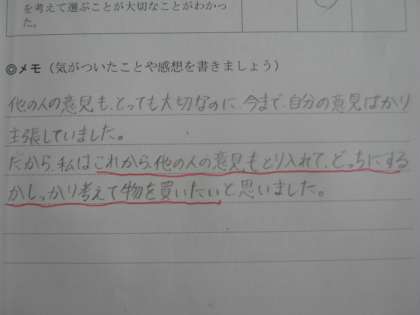 を考えて選ぶことが大切なことがわかっ
た。
◎メモ（気がついたことや感想を書きましょう）
他の人の意見も、とっても大切なのに、今まで、自分の意見ばかり
主張していました。
だから、私はこれから、他の人の意見もとり入れて、どっちにする
かしっかり考えて物を買いたいと思いました。